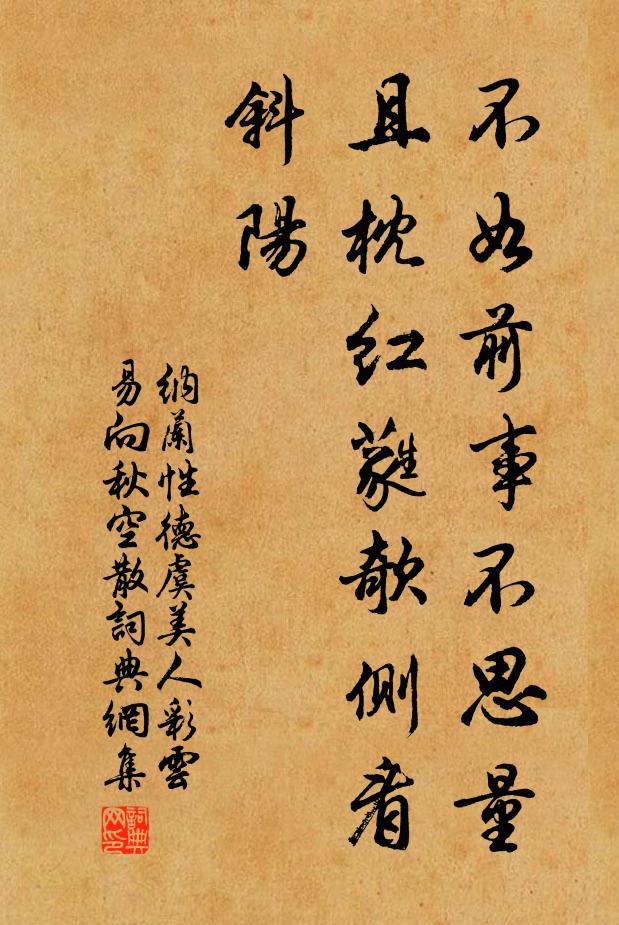 不如前事不思量
且枕红蕤欹侧看
斜陽
纳蘭性德虞美人彩雲
易向秋空散詞典網集
詞典网印